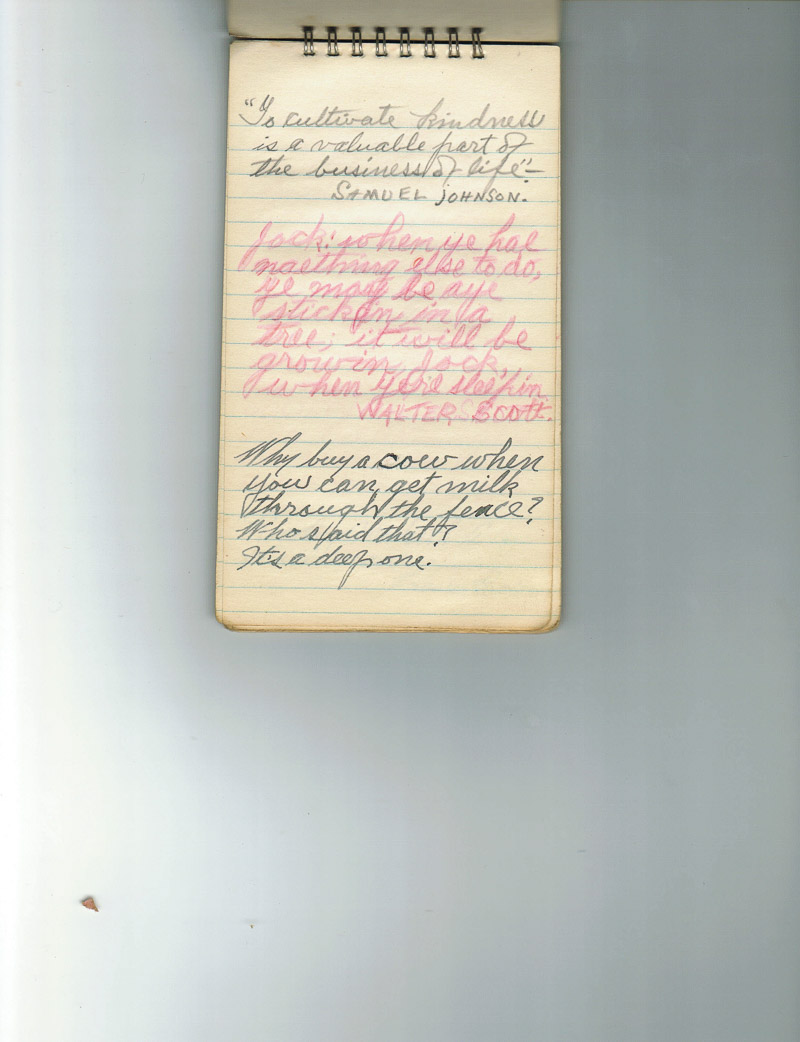 "To cultivate kindness
is a valuable part of
the business of life"—
SAMUEL JOHNSON.
Jock: when ye hae
naething else to do,
ye may be aye
stickin in a
tree; it will be
growin, Jock,
when ye're sleepin
WALTER SCOTT.
Why buy a cow when
you can get milk
through the fence?
Who said that?
It's a deep one.